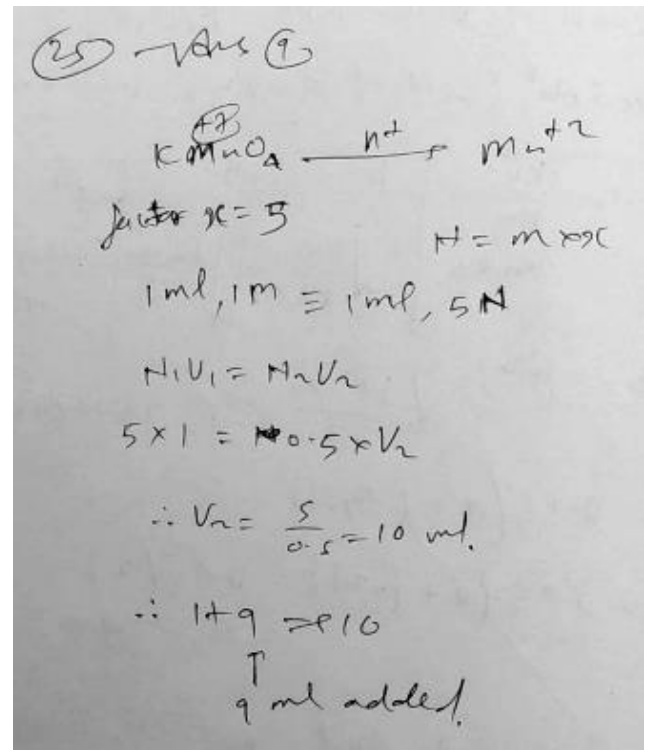 (25) → Ans (9)
+7
KMnO4 H+ → Mn+2
factor x = 5
N = M × x
1 ml, 1M ≡ 1 ml, 5N
N1V1 = N2V2
5 × 1 = 0.5 × V2
∴ V2 = 5/0.5 = 10 ml.
∴ 1+9 ⇒ 10
↑
9 ml added.